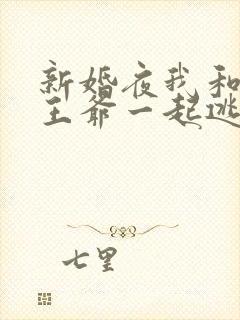 新婚夜我和
王爷一起逃
七里